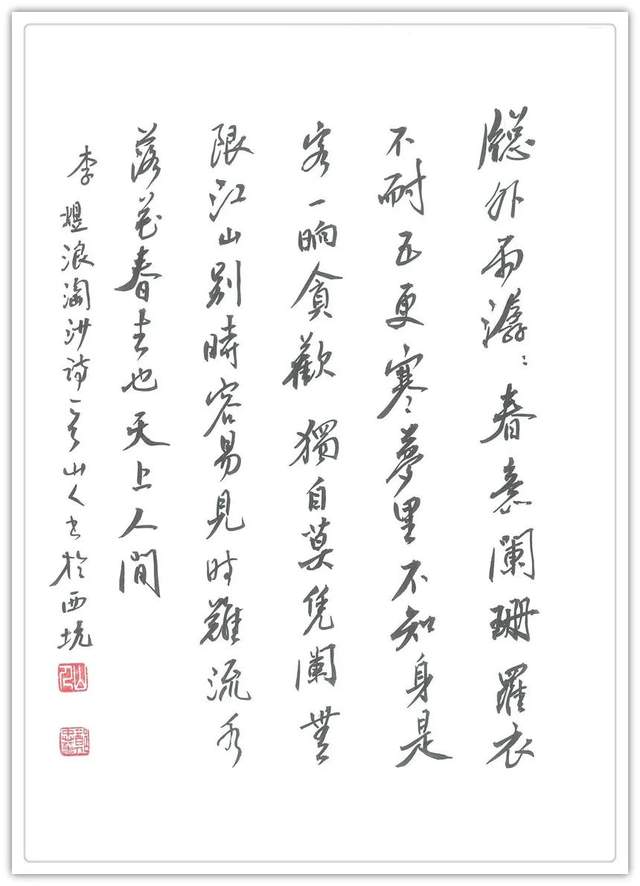 牕外雨潺〻春意闌珊羅衣
不耐五更寒夢里不知身是
客一晌貪歡獨自莫凭闌無
限江山别時容易見时難流水
落花春去也天上人間
李煜浪淘沙詩一山人书於西坑
山人